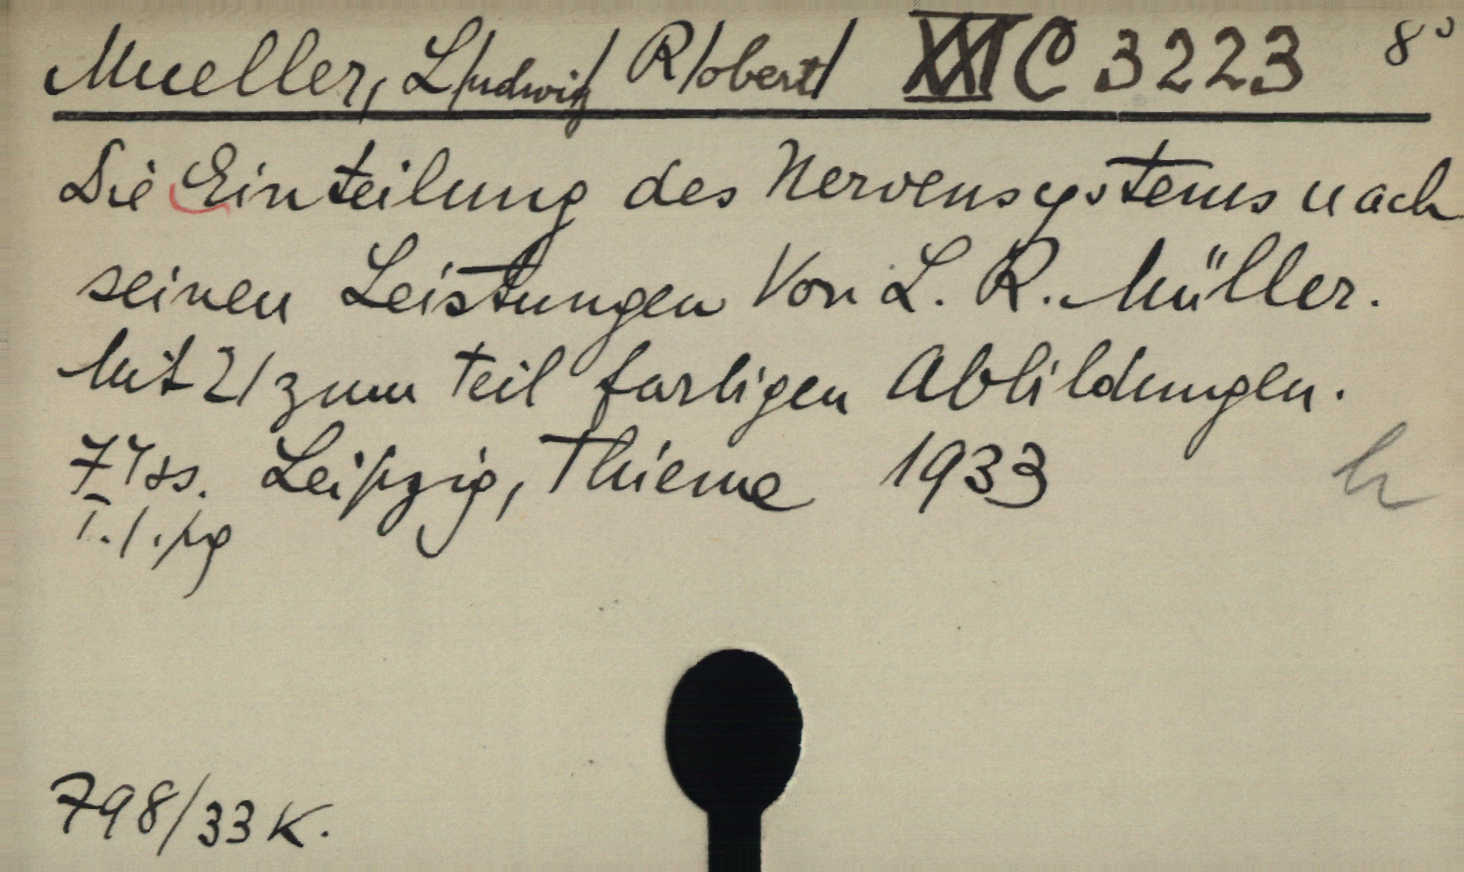 Mueller, L/udwig/ R/obert/ XXI C 3223 8°
Die Einteilung des Nervensystems nach
seinen Leistungen Von L. R. Müller.
Mit 21 zum Teil farbigen Abbildungen.
Leipzig, Thieme 1933
798/33 K.